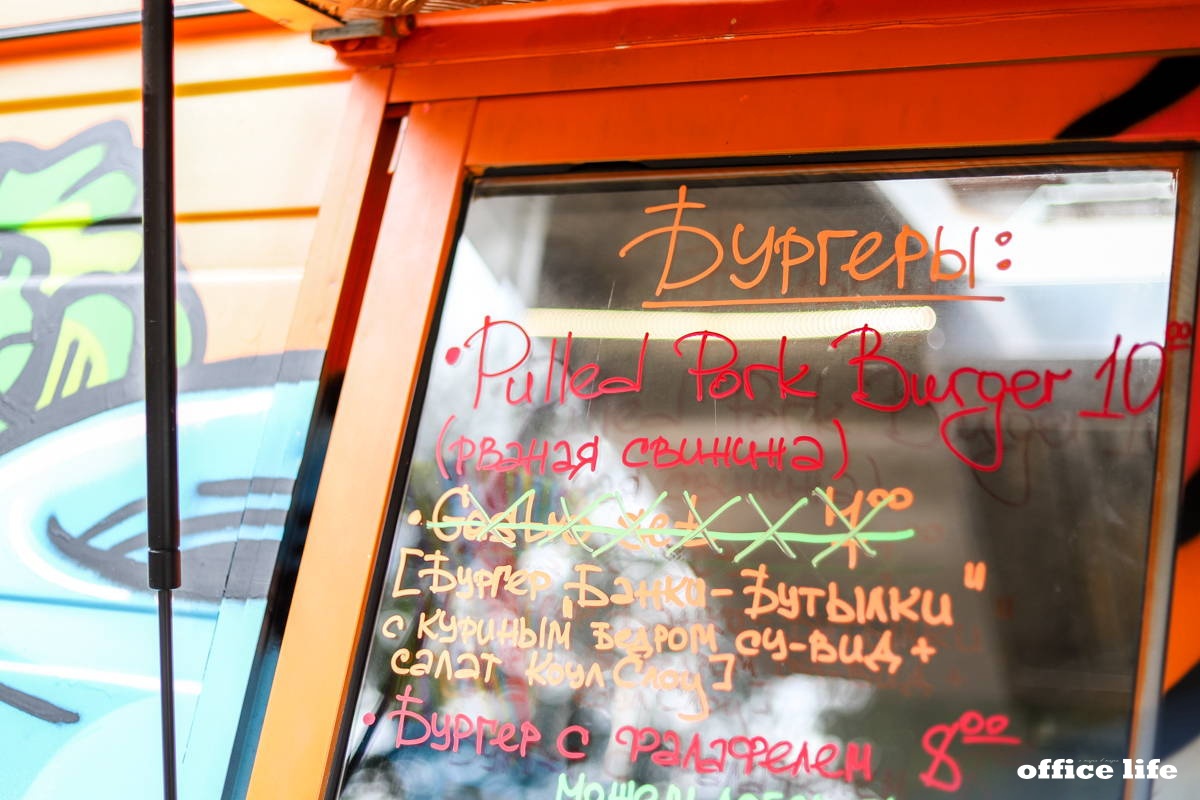 Бургеры:
• Pulled Pork Burger 10⁰⁰
(рваная свинина)
[Бургер "Банки-Бутылки"
с куриным бедром су-вид +
салат Коул Слоу]
• Бургер с фалафелем 8⁰⁰
office life